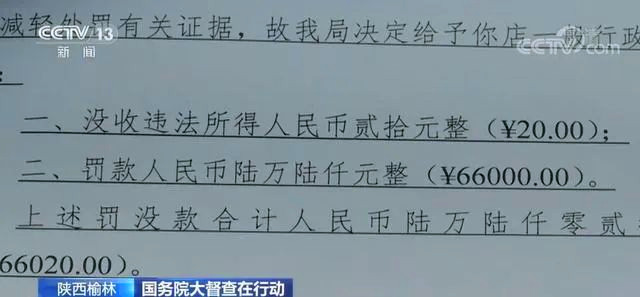 CCTV 13
新闻
CCTV.com
减轻处罚有关证据，故我局决定给予你店一般行政
：
一、没收违法所得人民币贰拾元整（¥20.00）；
二、罚款人民币陆万陆仟元整（¥66000.00）。
上述罚没款合计人民币陆万陆仟零贰
66020.00）。
陕西榆林 国务院大督查在行动